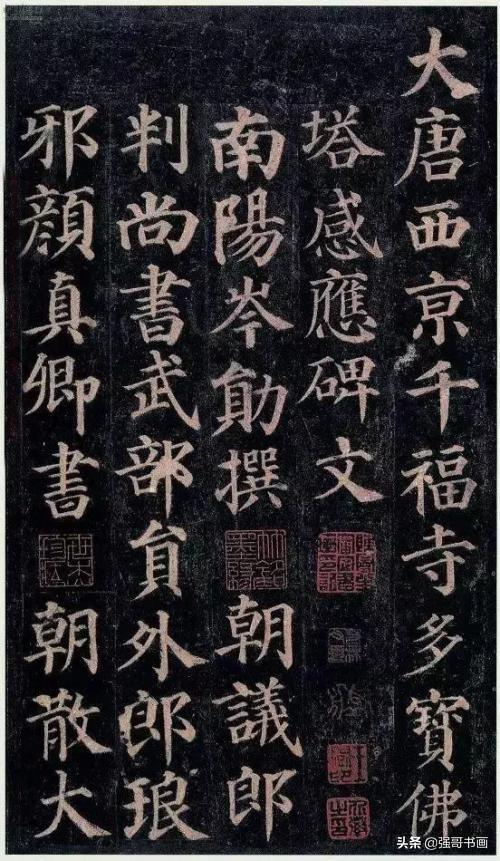 大唐西京千福寺多寳佛
塔感應碑文
南陽岑勛撰 朝議郎
判尚書武部貟外郎琅
邪顔真卿書 朝散大
头条 @强哥书画